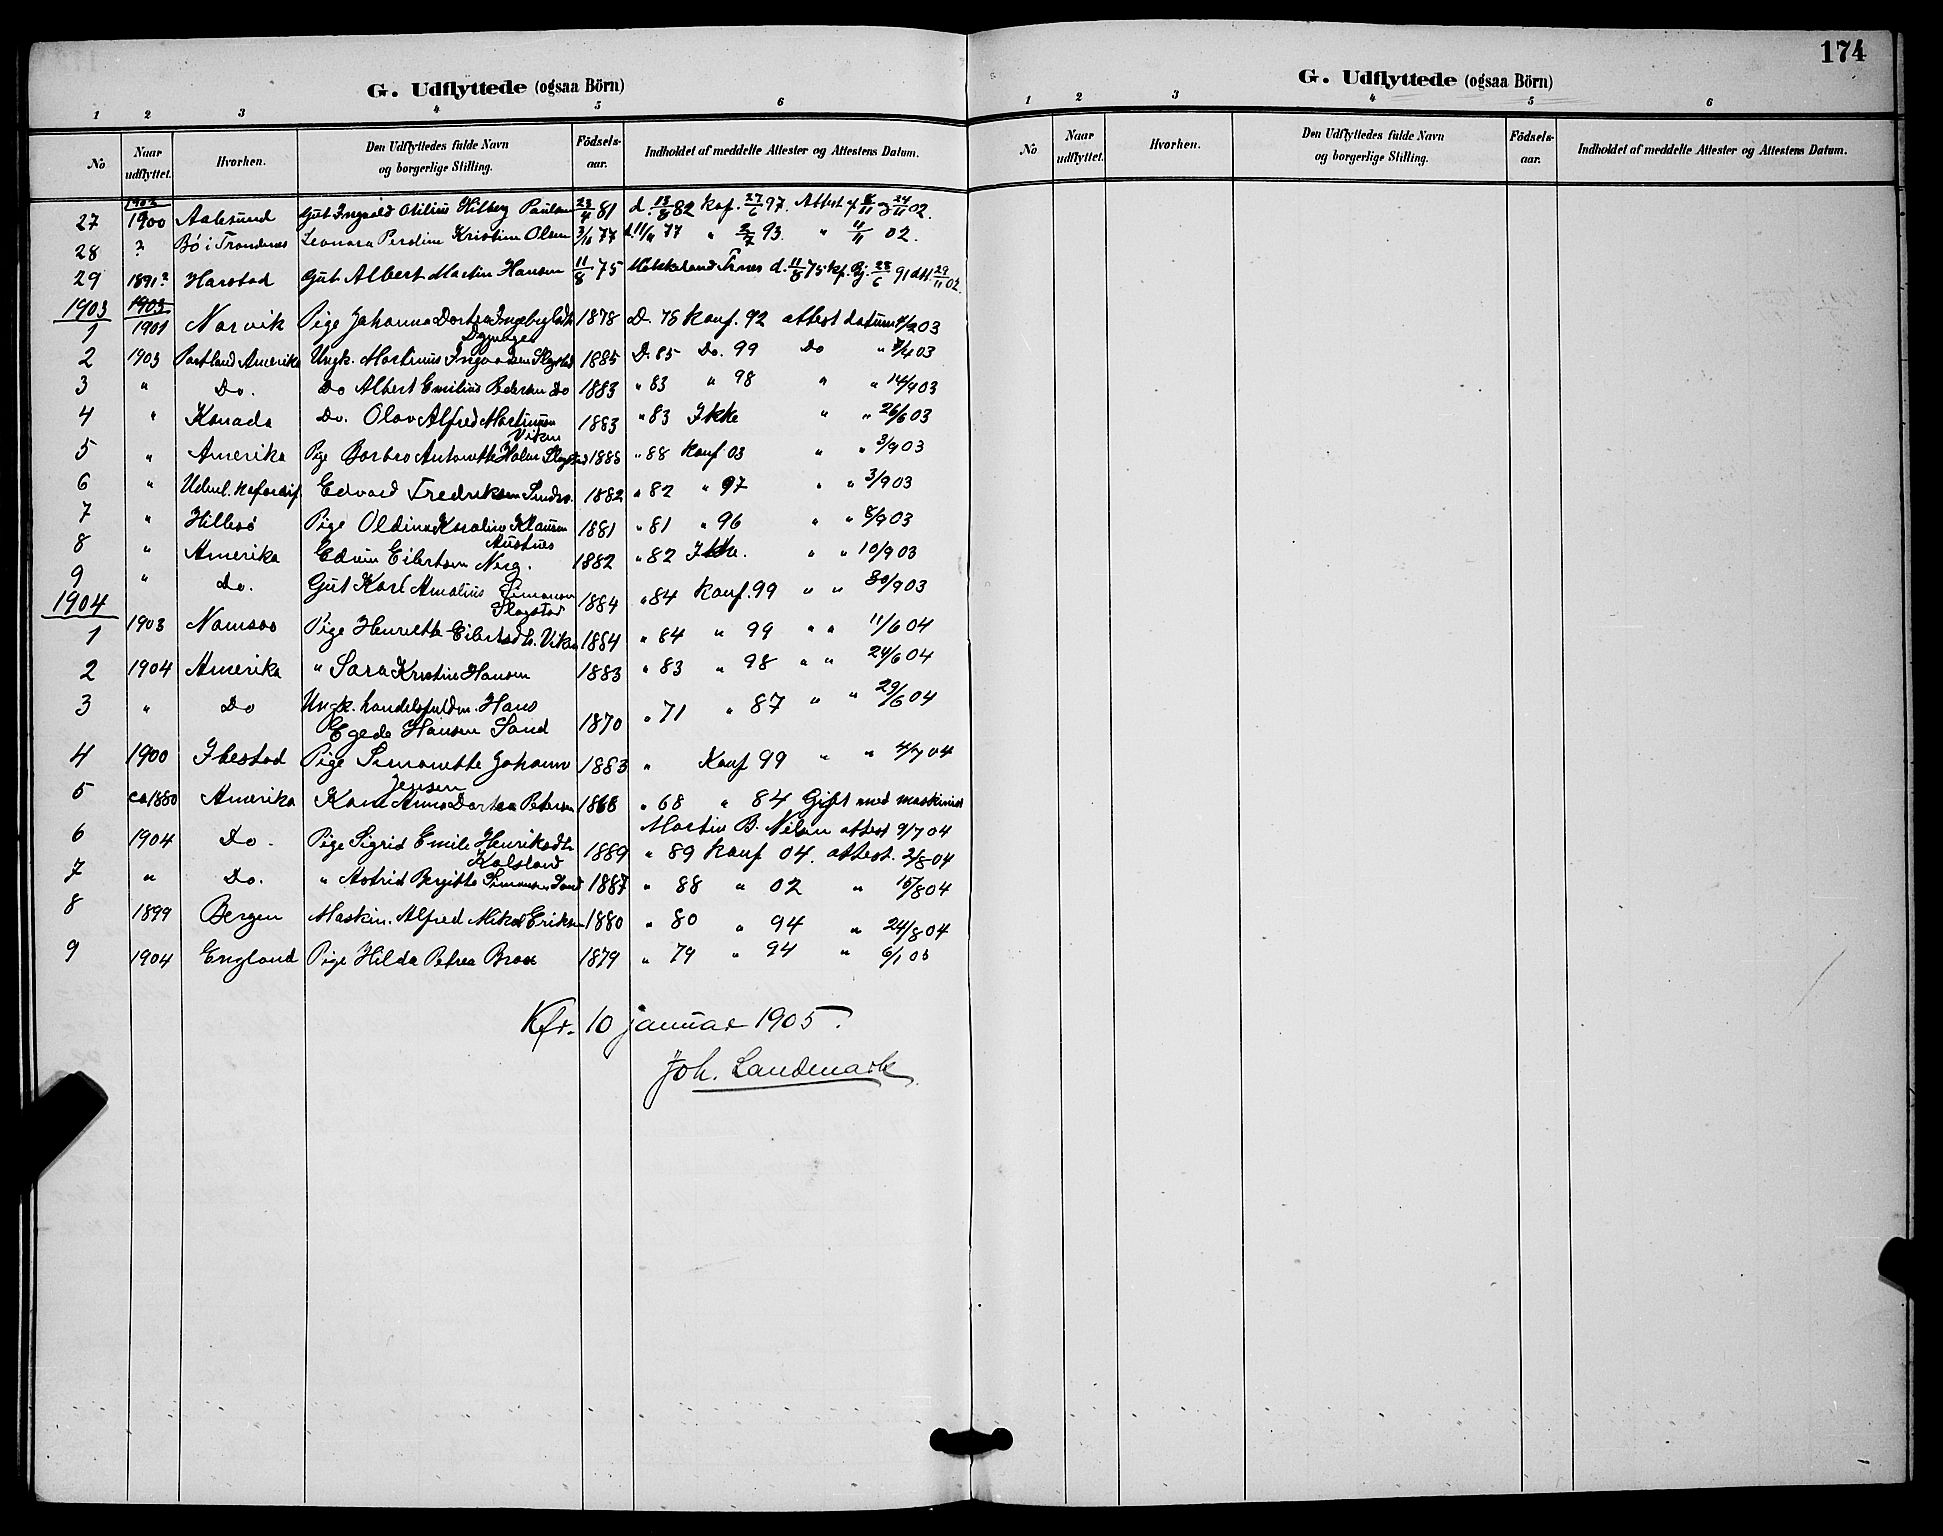 G. Udflyttede (ogsaa Börn)
1 2 3 4 5 6
No Naar udflyttet. Hvorhen. Den Udflyttedes fulde Navn og borgerlige Stilling. Födsels-aar. Indholdet af meddelte Attester og Attestens Datum.
1902
27 1900 Aalesund Gut Ingvald Otilius Hilberg Paulsen 23/4 81 d. 13/8 82 Kof. 27/6 97. Attest 8/11 24/11 02.
28 ? Bø i Trondenes Leonora Perdine Kristine Olsen 3/10 77 d. 11/11 77 " 2/7 93. " 4/11 02.
29 1891? Harstad Gut Albert Martin Hansen 11/8 75 d. 11/8 75 kf. 28/6 91 29/11 02.
1903 1903
1 1901 Narvik Pige Johanna Dortea 1878 D. 78 Konf. 92 attest datum 03
2 1903 Portland Amerika Ungk. Martinus Slagstad 1885 D. 85 Do. 99 Do " /4 03
3 " Do. Do Albert Emilius Pedersen Do 1883 " 83 " 98 " " 14/4 03
4 " Kanada Do. Olav Alfred Martinusen 1883 " 83 Ikke " " 26/6 03
Viken
5 " Amerika Pige Barbro Antonette 1885 " 88 Konf 03 " " 3/9 03
6 " Edvard Fredriksen 1882 " 82 " 97 " " 3/9 03
7 " Hillesø Pige Oldine Karoline Klausen 1881 " 81 " 96 " " 8/9 03
Austnes
8 " Amerika Edvin Eilertsen 1882 " 82 Ikke. " " 10/9 03
9 " Do. Gut Karl Amalius Simonsen 1884 " 84 Konf. 99 " " 30/9 03
Slagstad
1904
1 1903 Namsos Pige Henriette Eilertsdtr. Viken 1884 " 84 " 99 " " 11/6 04
2 1904 Amerika " Sara Kristine Hansen 1883 " 83 " 98 " " 24/6 04
3 " Do Ungk. handelsfuldm. Hans
Egede Hansen Sand 1870 " 71 " 87 " " 29/6 04
4 1900 Ibestad Pige Simonette Johanne 1883 " Konf 99 " " 4/7 04
Jensen
5 ca 1880 Amerika Kone Anna Dortea Petersen 1868 " 68 " 84 Gift med maskinist
Martin B. Nilsen attest 9/7 04
6 1904 Do. Pige Sigrid Emile Henriksdtr 1889 " 89 Konf 04. attest. 2/8 04
Kalsland
7 " Do. " Astrid Bergitte Simonsen Sand 1887 " 88 " 02 " 15/8 04
8 1899 Bergen Maskin. Alfred Mikal Eriksen 1880 " 80 " 94 " 24/8 04
9 1904 England Pige Hilda Petrea Brox 1879 " 79 " 94 " 6/1 05
Kfr. 10 januar 1905.
Joh. Landmark
174
G. Udflyttede (ogsaa Börn)
1 2 3 4 5 6
No Naar udflyttet. Hvorhen. Den Udflyttedes fulde Navn og borgerlige Stilling. Födsels-aar. Indholdet af meddelte Attester og Attestens Datum.